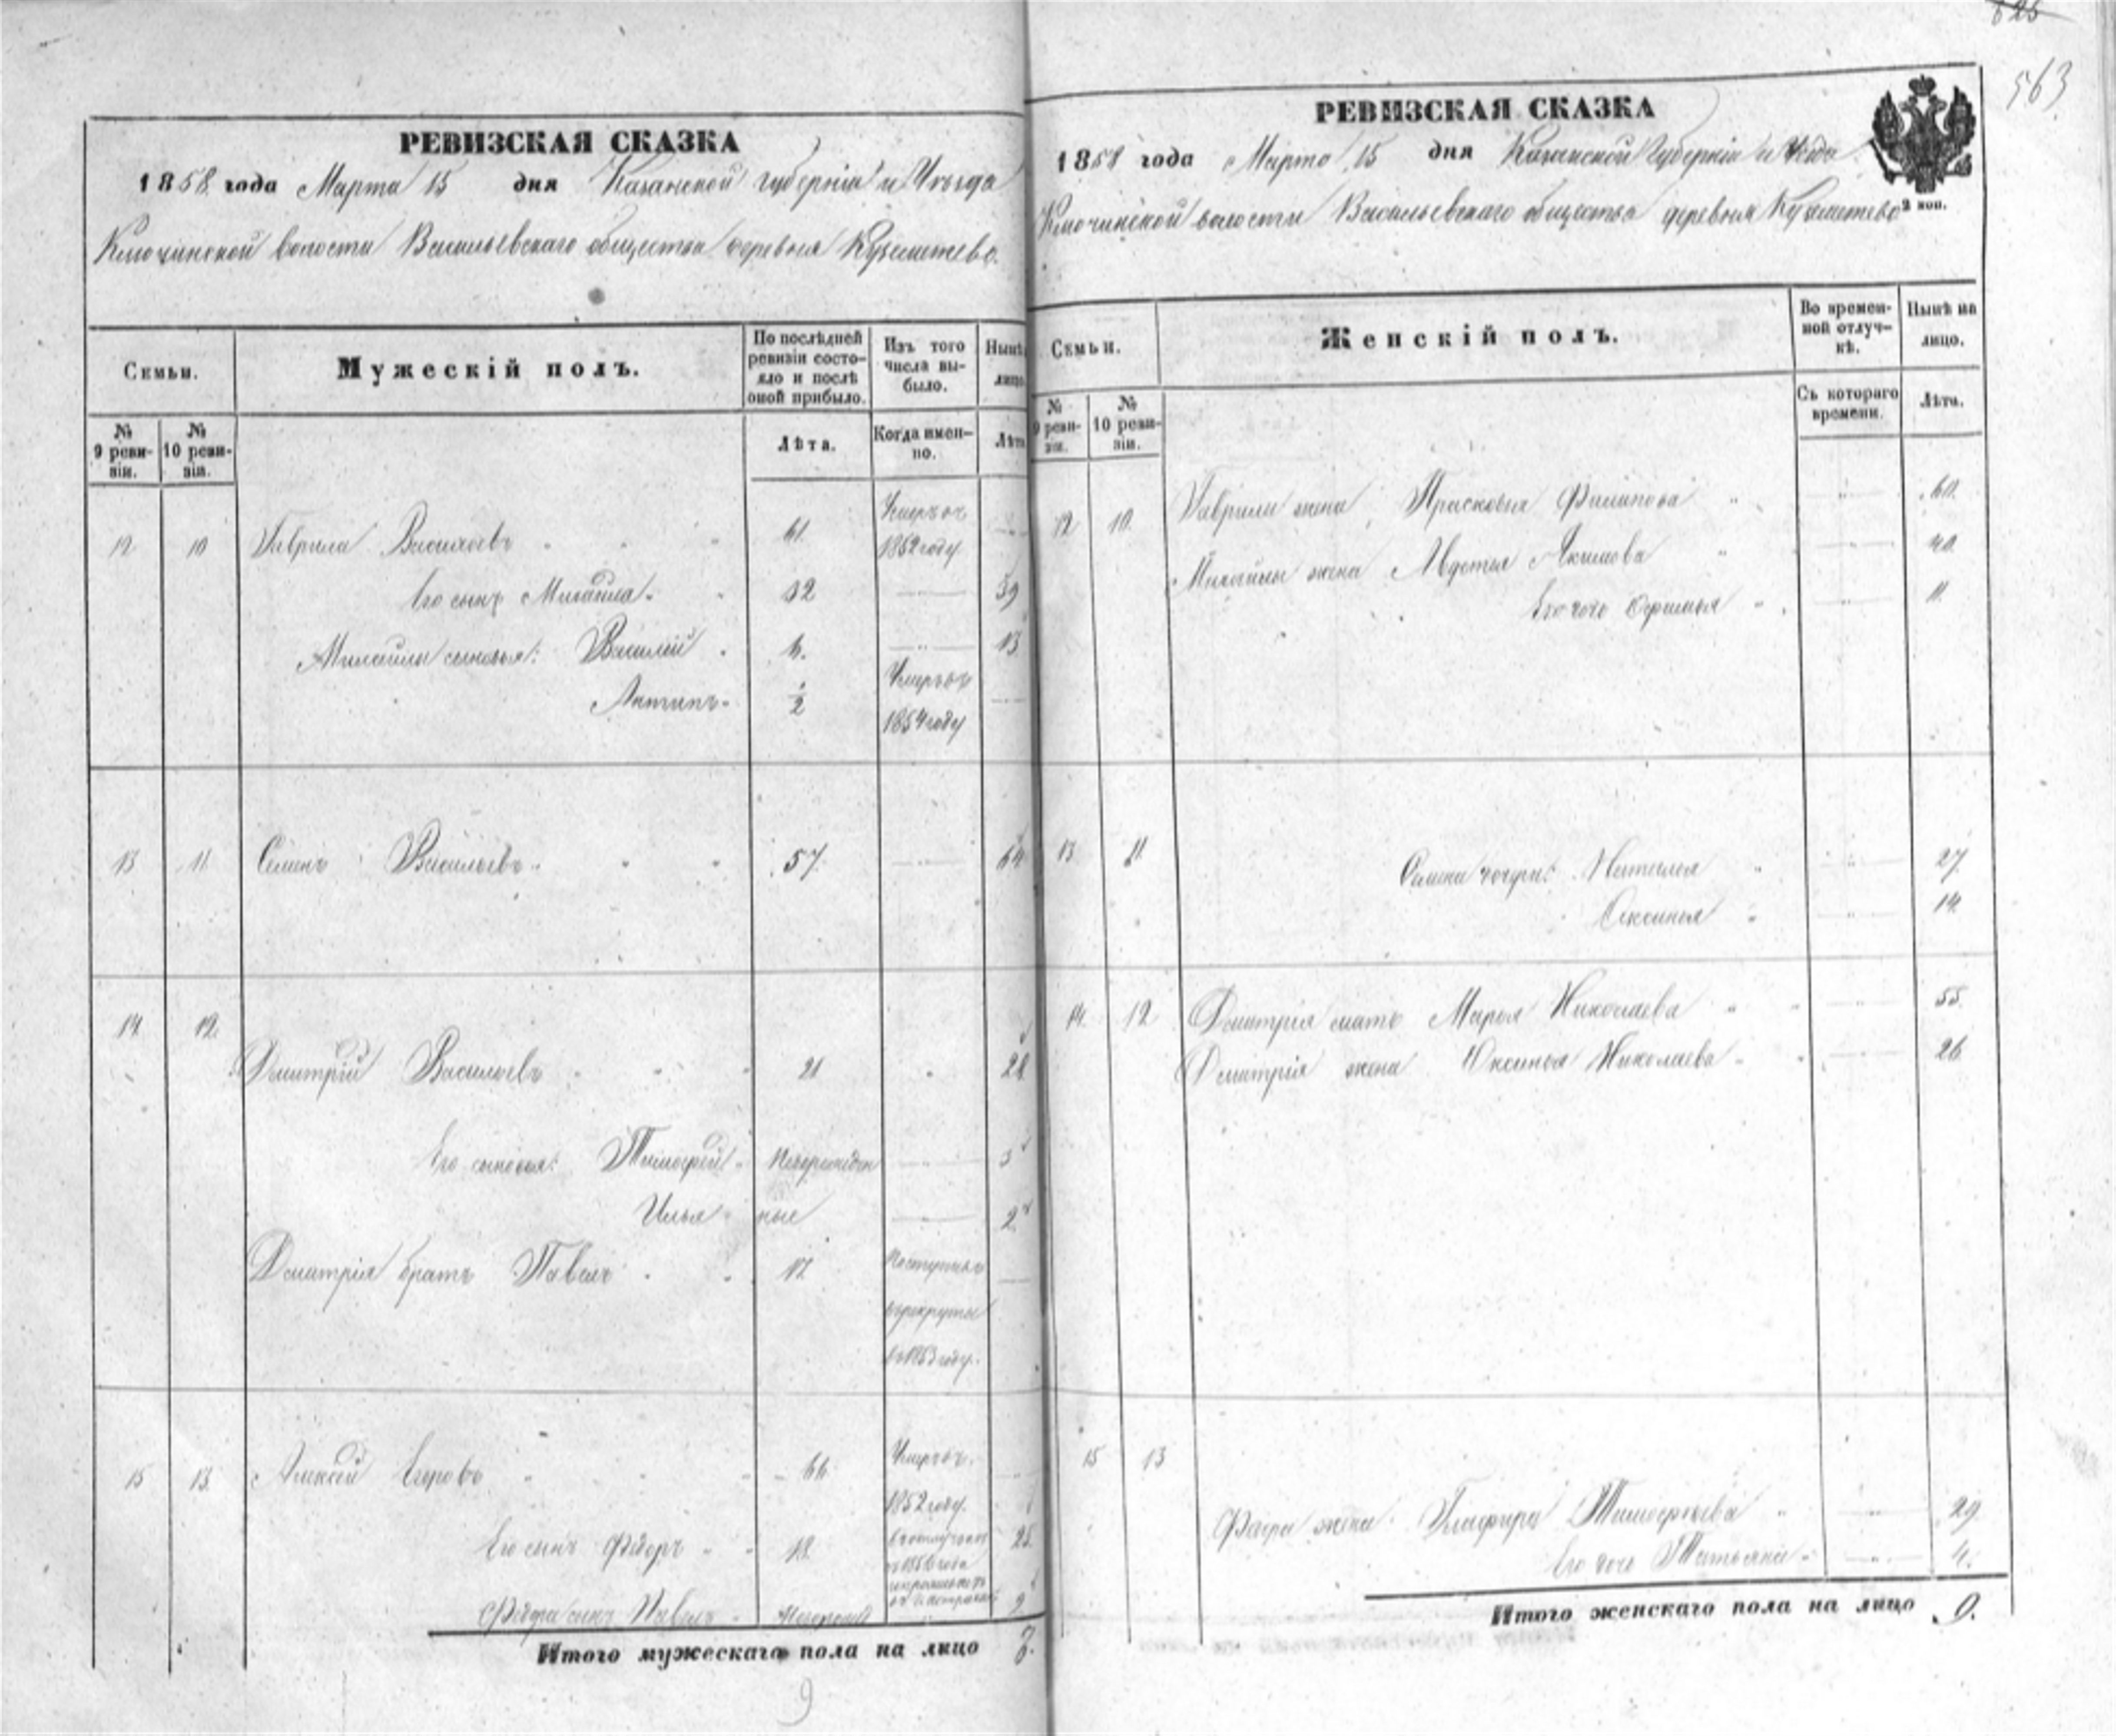 РЕВИЗСКАЯ СКАЗКА
1858 года Марта 15 дня Казанской губернiи и Уѣзда
Ключинской волости Васильевскаго общества деревня
Семьи.
Мужескій полъ.
По послѣдней ревизіи состояло и послѣ оной прибыло.
Изъ того числа выбыло.
Нынѣ
лицо
№ 9 ревизіи.
№ 10 ревизіи.
Лѣта.
Когда именно.
Лѣта
12 10 Гаврила Васильевъ 61. Умеръ въ 1852 году
Его сынъ Михайла 32 39
Михайлы сыновья: Василій 6. 13
Антипъ 1/2 Умеръ въ 1854 году
13 11 Семенъ Васильевъ 57. 64
14 12 Дмитрій Васильевъ 21 28
Его сыновья: Тимофей 5
Илья ные 2
Дмитрія братъ Павелъ 17 Поступилъ
въ рекруты
въ 1853 году.
15 13 Алексѣй Егоровъ 66 Умеръ въ
1852 году
Его сынъ Фёдоръ 18 25
Федора сынъ Павелъ
Итого мужескаго пола на лицо
9
РЕВИЗСКАЯ СКАЗКА
563
1858 года Марта 15 дня Казанской Губерніи и Уѣзда
2 коп.
Ключинской волости Васильевскаго общества деревня
Семьи.
Женскій полъ.
Во временной отлучкѣ.
Нынѣ на лицо.
№ 9 ревизіи.
№ 10 ревизіи.
Съ котораго времени.
Лѣта.
12 10. Гаврилы жена Прасковья Филипова 60.
Михайлы жена Авдотья Акимова 40
Его дочь 11
13 11 Семена дочери: Наталья 27
Оксинья 14
14 12 Дмитрія мать Марья Николаева 55
Дмитрія жена Оксинья Николаева 26
15 13 Федора жена Глафира Тимофеева 29
Его дочь Татьяна 4.
Итого женскаго пола на лицо 9.